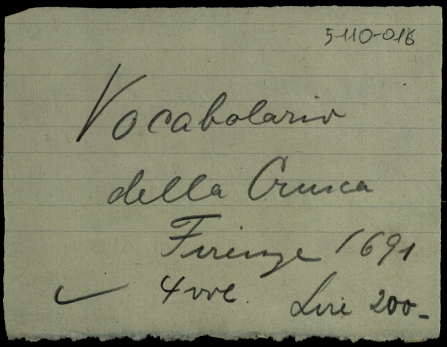 5-110-018
Vocabolario
della Crusca
Firenze 1691
4 vol. Lire 200-